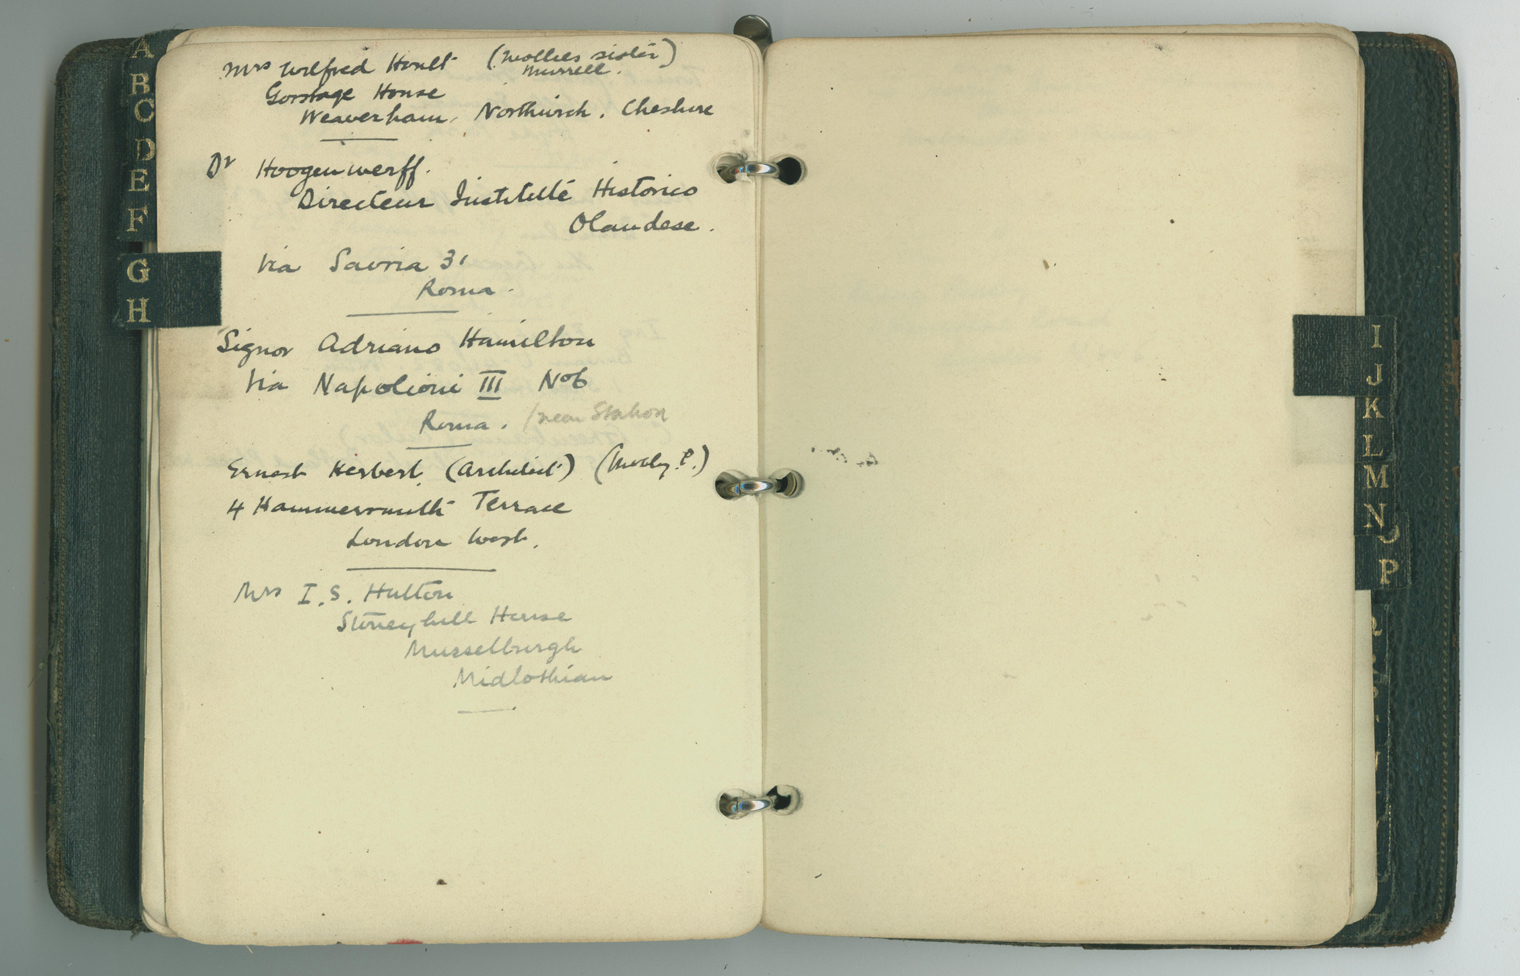 A
B
C
D
E
F
G
H
Mrs Wilfred Hoult (Mollies sister)
Murrell.
Gorstage House
Weaverham, Northwich, Cheshire
Dr Hoogenwerff.
Directeur Institúte Historico
Olandese.
Via Savoia 31
Roma.
Signor Adriano Hamilton
Via Napolioni III No6
Roma. (near Station
Ernest Herbert (Architect) (Molly P.)
4 Hammersmith Terrace
London West.
Mrs I. S. Hutton
Stoneyhill House
Musselburgh
Midlothian
I
J
K
L
M
N
P